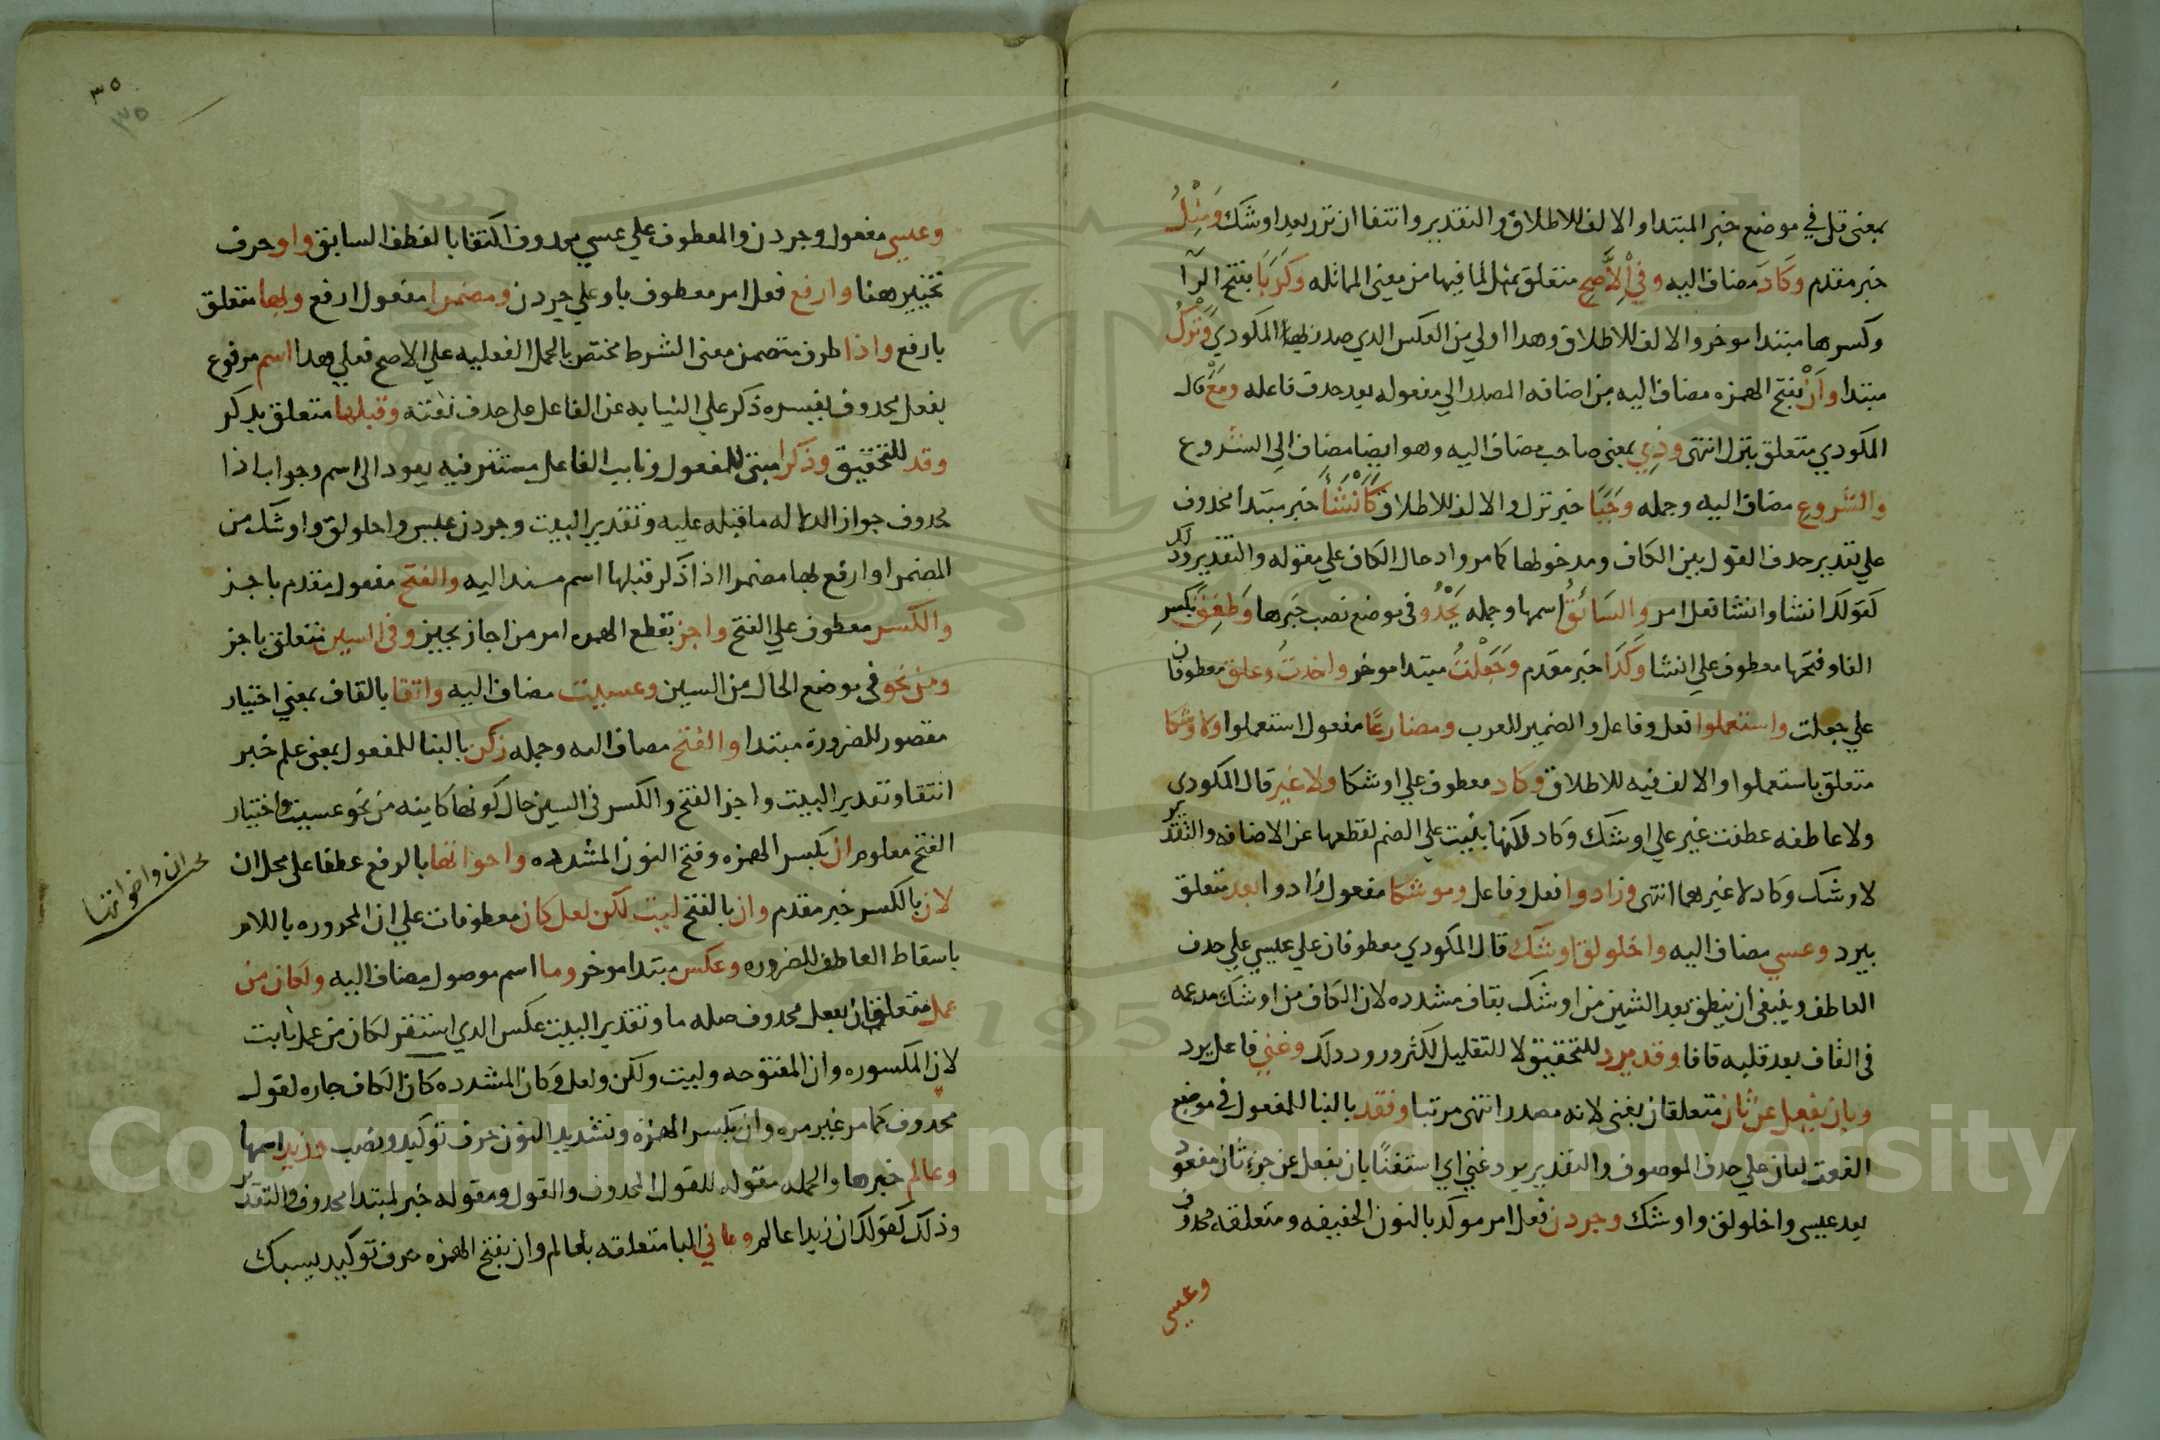 بمعنى قل في موضع خبر المبتدا والالف للاطلاق والتقدير وانتفا ان نزر بعد اوشك ومِثْلُ
خبر مقدم وكَادَ مضاف اليه وفي الْاَصَحِّ متعلق بمثل لما فيها من معنى المماثله وكَرَبَا بفتح الرآ
وكسرها مبتدا موخر والالف للاطلاق وهدا اولي من العكس الدي صدر به المكودي وتَرْكُ
مبتدا واَنْ بفتح الهمزه مضاف اليه من اضافه المصدر الي مفعوله بعد حدف فاعله ومَعْ قال
المكودي متعلق بترك انتهى وذِي بمعنى صاحب مضاف اليه وهو ايضا مضاف الي الشروع
والشروع مضاف اليه وجمله وَجَبَا خبر ترك والالف للاطلاق كَاَنْشَأَ خبر مبتدا محدوف
علي تقدير حدف القول بين الكاف ومدخولها كما مر وادخال الكاف علي مقوله والتقدير ودلك
كقولك انشا وانشا فعل امر والسَائقُ اسمها وجمله يَحْدُو في موضع نصب خبرها وطَفِقَ بكسر
الفا وفتحها معطوف علي انشا وكَدَا خبر مقدم وجَعَلْتُ مبتدا موخر واخدتُ وعلق معطوفان
علي جعلت واستعملوا فعل وفاعل والضمير للعرب ومضارعًا مفعول استعملوا ولاوشكا
متعلق باستعملوا والالف فيه للاطلاق وكاد معطوف علي اوشكا ولا غير قال المكودي
ولا عاطفه عطفت غير علي اوشك وكاد لكنها بنيت علي الضم لقطعها عن الاضافه والتقدير
لاوشك وكاد لا غيرهما انتهى وزادوا فعل وفاعل وموشكا مفعول زادوا بعد متعلق
بيرد وعسي مضاف اليه واخلولق اوشك قال المكودي معطوفان علي عسي علي حدف
العاطف وينبغي ان ينطق بعد الشين من اوشك بقاف مشدده لان الكاف من اوشك مدغمه
في القاف بعد قلبه قافا وقد يرد للتحقيق لا للتقليل لكثر ورود دلك وغني فاعل يرد
وبان يفعل عن ثان متعلقان بغني لانه مصدر انتهى مرتبا وفقد بالبنا للمفعول في موضع
النعت لثان علي حدف الموصوف والتقدير يرد غني اي استغنًا بان يفعل عن جزء ثان مفقود
بعد عسي واخلولق واوشك وجردن فعل امر موكد بالنون الخفيفه ومتعلقه محدوف
وعسي
٣٥
٣٥
وعسي مفعول وجردن والمعطوف علي عسي محدوف اكتفا بالفظف السابق واو حرف
تخيير هنا وارفع فعل امر معطوف باو علي جردن ومضمرا مفعول ارفع وبها متعلق
بارفع واذا ظرف متضمن معنى الشرط مختص بالجمل الفعليه علي الاصح فعلي هدا اسم مرفوع
بفعل محدوف يفسره ذكر علي النيابه عن الفاعل علي حدف نعته وقبلها متعلق بدكر
وقد للتحقيق وذكرا مبني للمفعول ونايب الفاعل مستتر فيه يعود الى اسم وجواب اذا
محدوف جواز الدلاله ما قبله عليه وتقدير البيت وجردن عسي واخلولق واوشك من
المضمر او ارفع بها مضمرا اذا ذكر قبلها اسم مسند اليه والفتح مفعول مقدم باجز
والكسر معطوف علي الفتح واجز بقطع الهمزه امر من اجاز يجيز وفي السين متعلق باجز
ومن نحو في موضع الحال من السين وعسيت مضاف اليه وانتقا بالقاف بمعني اختيار
مقصور للضرورة مبتدا والفتح مضاف اليه وجمله زكن بالبنا للمفعول بمعنى علم خبر
انتقا وتقدير البيت واجز الفتح والكسر في السين حال كونها كاينه من نحو عسيت واختيار
الفتح معلوم ان بكسر الهمزه وفتح النون المشدده واخواتها بالرفع عطفا علي محل ان
لان بالكسر خبر مقدم وان بالفتح ليت لكن لعل كان معطوفات علي ان المجروره باللام
باسقاط العاطف للضروره وعكس مبتدا موخر وما اسم موصول مضاف اليه ولكان من
عمل متعلقان بفعل محدوف صله ما وتقدير البيت عكس الدي استقر لكان من عمل ثابت
لان المكسوره وان المفتوحه وليت ولكن ولعل وكان المشدده كان الكاف جاره لقول
محدوف كما مر غير مره وان بكسر الهمزه وتشديد النون حرف توكيد ونصب وزيدا اسمها
وعالم خبرها والجمله مقوله للقول المحدوف والقول ومقوله خبر لمبتدا محدوف والتقدير
وذلك كقولك ان زيدا عالم وباني البا متعلقه بعالم وان بفتح الهمزه حرف توكيد يسبك
ان واخواتها
Copyright © King Saud University
195